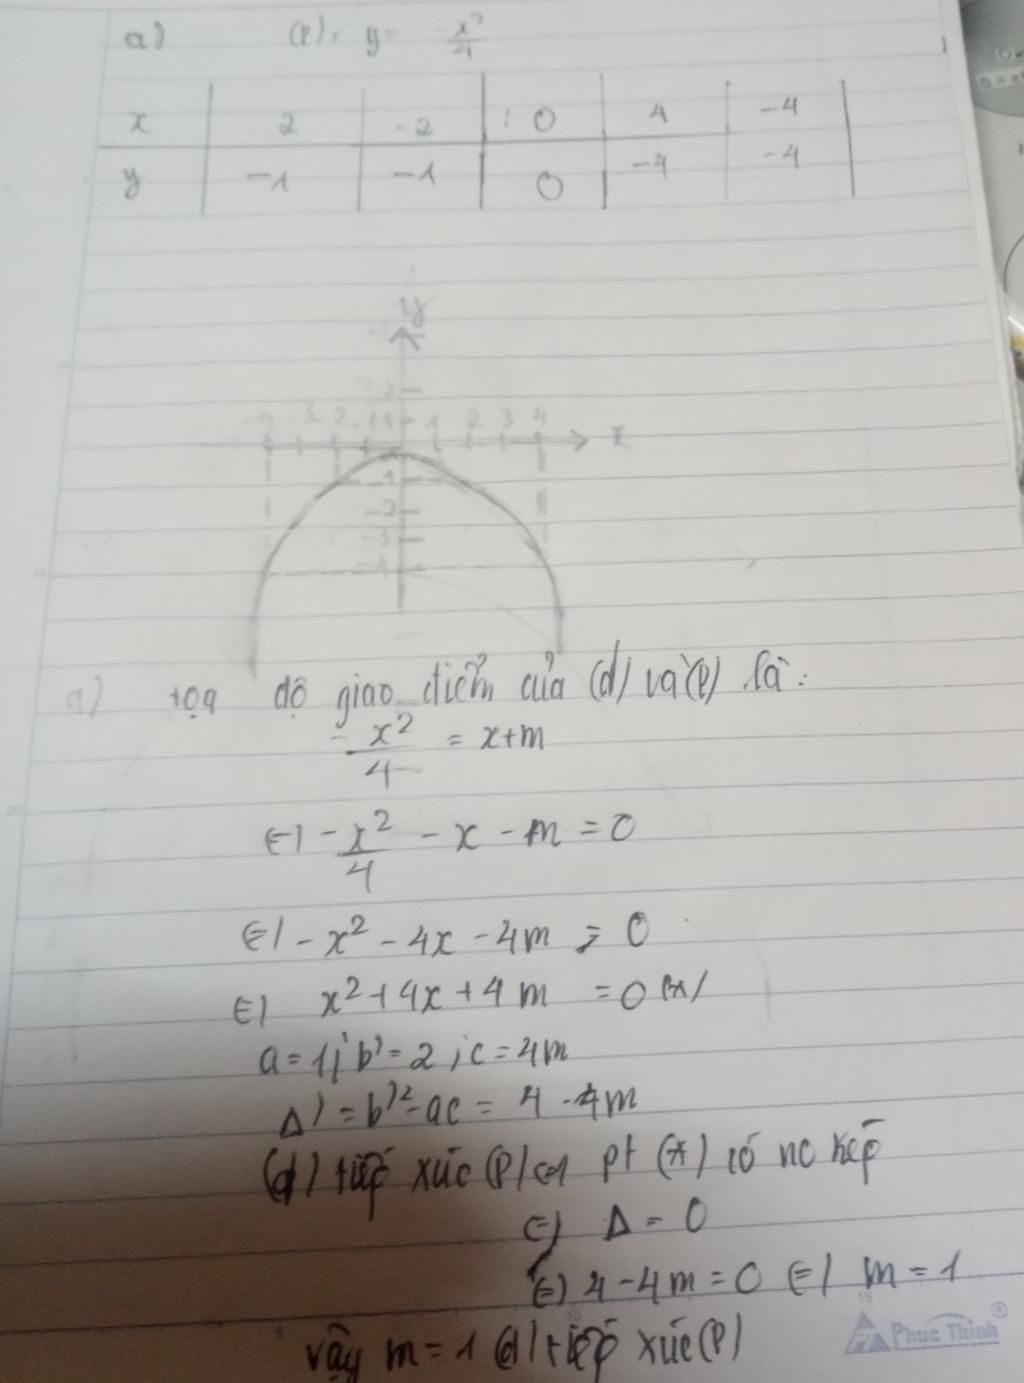 a) (P): y = -x²/4
x 2 -2 : 0 4 -4
y -1 -1 0 -4 -4
y
2
-4 3 2 -1 1 1 2 3 4 x
-1
-2
-3
-4
a) tọa độ giao điểm của (d) và (P) là:
-x²/4 = x+m
(=) -x²/4 - x - m = 0
(=) -x² - 4x - 4m = 0
(=) x² + 4x + 4m = 0 (*)
a = 1; b' = 2; c = 4m
Δ' = b'² - ac = 4 - 4m
(d) tiếp xúc (P) (=) pt (*) có no kép
(=) Δ = 0
(=) 4 - 4m = 0 (=) m = 1
vậy m = 1 (d) tiếp xúc (P)
Phuc Thinh ®